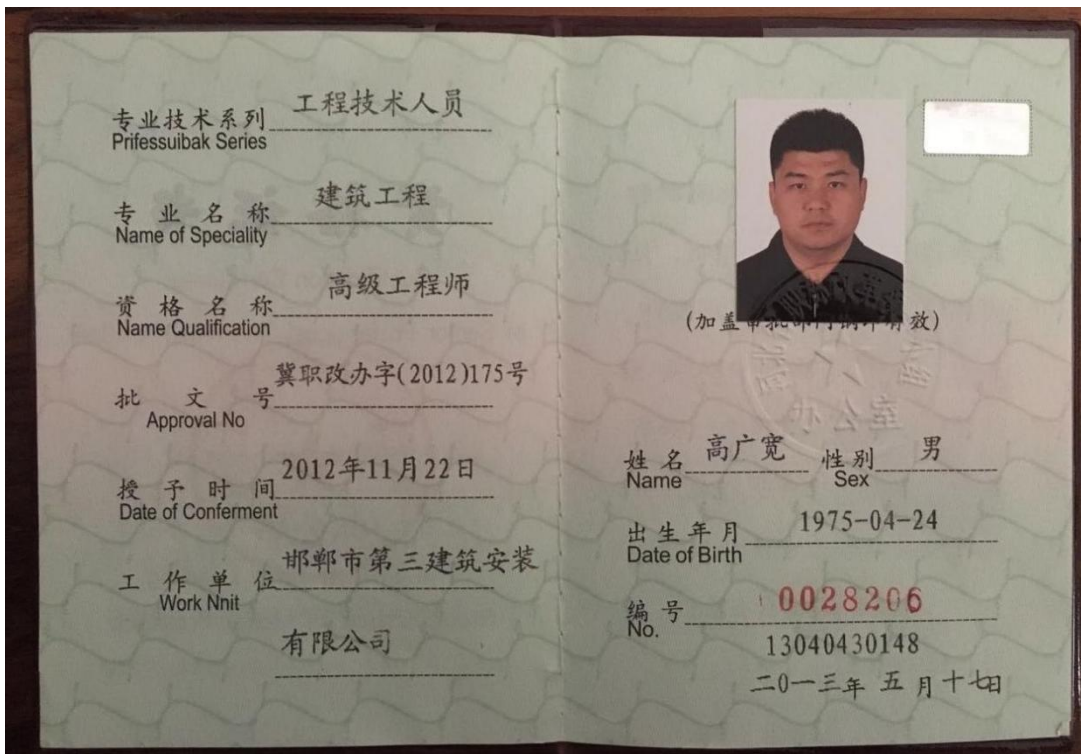 专业技术系列 工程技术人员
Prifessuibak Series
专业名称 建筑工程
Name of Speciality
资格名称 高级工程师
Name Qualification
批文号 冀职改办字(2012)175号
Approval No
授予时间 2012年11月22日
Date of Conferment
工作单位 邯郸市第三建筑安装
Work Nnit
有限公司
(加盖审批部门钢印有效)
姓名 高广宽 性别 男
Name Sex
出生年月 1975-04-24
Date of Birth
编号 0028206
No.
13040430148
二0一三年 五月十七日